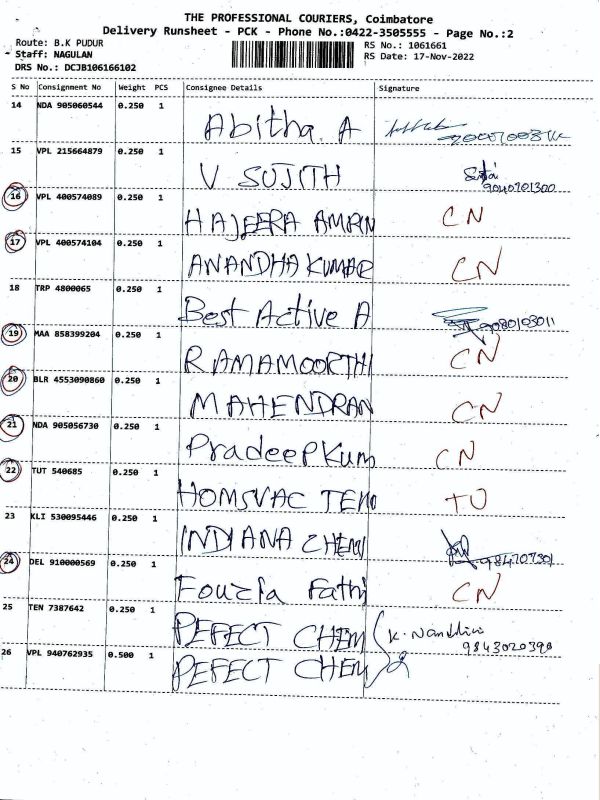 THE PROFESSIONAL COURIERS, Coimbatore
Delivery Runsheet - PCK - Phone No.:0422-3505555 - Page No.:2
Route: B.K PUDUR RS No.: 1061661
Staff: NAGULAN RS Date: 17-Nov-2022
DRS No.: DCJB106166102
S No Consignment No Weight PCS Consignee Details Signature
14 NDA 905060544 0.250 1
Abitha. A
15 VPL 215664879 0.250 1
V SUJITH
9040701300
16 VPL 400574089 0.250 1
HAJEERA AMRIN CN
17 VPL 400574104 0.250 1
ANANDHA KUMAR CN
18 TRP 4800065 0.250 1
Best Active A 9080103011
19 MAA 858399204 0.250 1
RAMAMOORTHI CN
20 BLR 4553090860 0.250 1
MAHENDRAN CN
21 NDA 905056730 0.250 1
Pradeep Kum CN
22 TUT 540685 0.250 1
HOMSVAC TEN TO
23 KLI 530095446 0.250 1
INDIANA CHEM
24 DEL 910000569 0.250 1
Fouzia Fathi CN
25 TEN 7387642 0.250 1
PEFECT CHEM K. Nandhini
9843020390
26 VPL 940762935 0.500 1
PEFECT CHEM